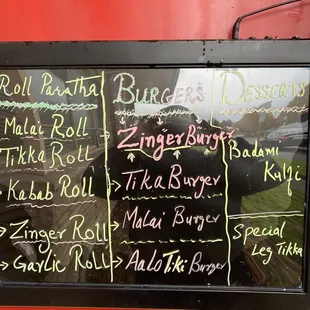 Roll Paratha
Malai Roll
Tikka Roll
Kabab Roll
Zinger Roll
Garlic Roll
BURGERS
Zinger Burger
Tika Burger
Malai Burger
Aalo Tiki Burger
DESSERTS
Badami
Kulfi
Special
Leg Tikka